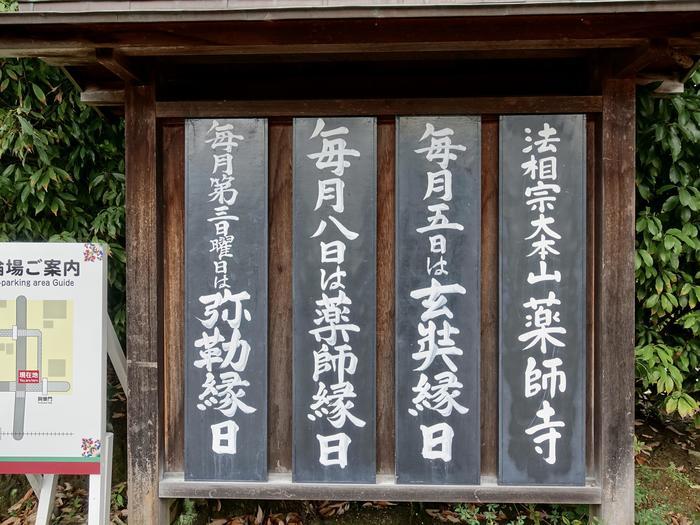 法相宗大本山薬師寺
毎月五日は玄奘縁日
毎月八日は薬師縁日
毎月第三日曜日は弥勒縁日
場ご案内
parking area Guide
現在地